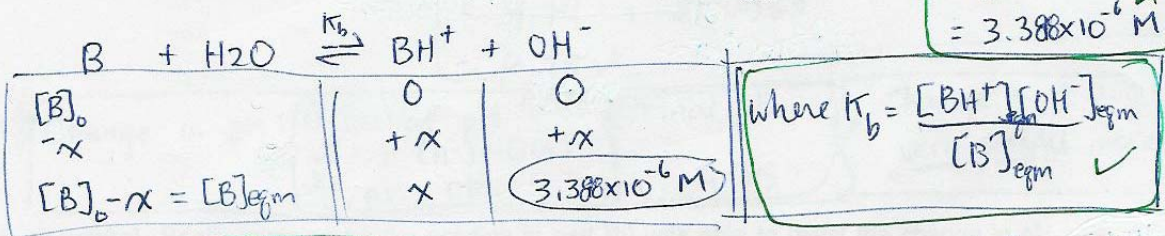 = 3.388x10⁻⁶ M
B + H2O ⇌ BH⁺ + OH⁻
K_b
[B]₀ 0 0
-x +x +x
[B]₀-x = [B]eqm x 3.388x10⁻⁶ M
where K_b = [BH⁺]eqm[OH⁻]eqm
[B]eqm ✓